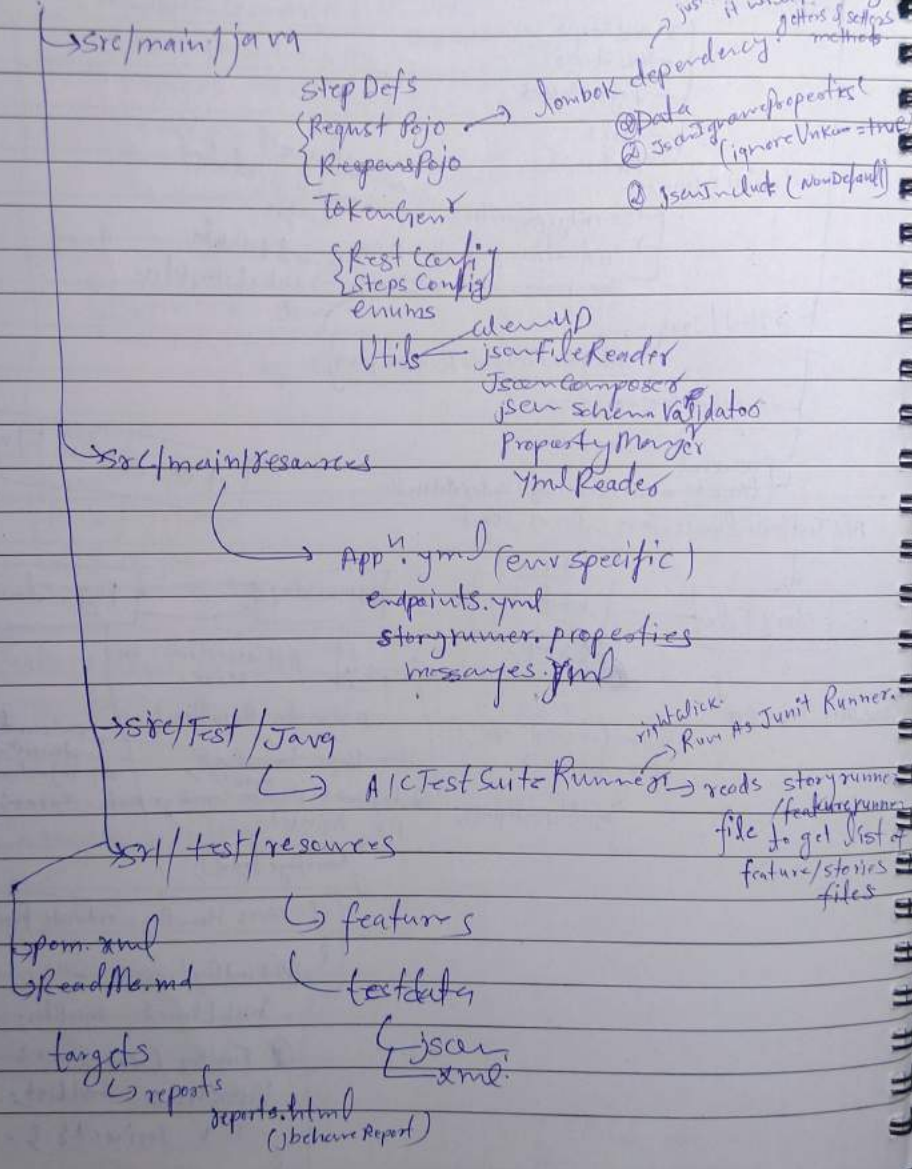 just it w
getters & setters
methods.
src/main/java
StepDefs
lombok dependency
Requst Pojo
ResponsPojo
@Data
② JsonIgnoreProperties(
(ignoreUnknown = true)
③ JsonInclude (NonDefault)
TokenGenr
Rest Config
Steps Config
enums
Utils
cleanUP
jsonFileReader
JsonComposer
json Schema Validator
PropertyManger
YmlReader
src/main/resources
Appn. yml (env specific)
endpoints.yml
storyrunner. properties
messages.yml
src/Test/Java
rightclick.
Run As Junit Runner.
AICTestSuiteRunner
reads storyrunner
/featurerunner
file to get list of
feature/stories
files
srl/test/resources
features
testdata
json
xml.
pom.xml
ReadMe.md
targets
reports
reports.html
(jbehaveReport)